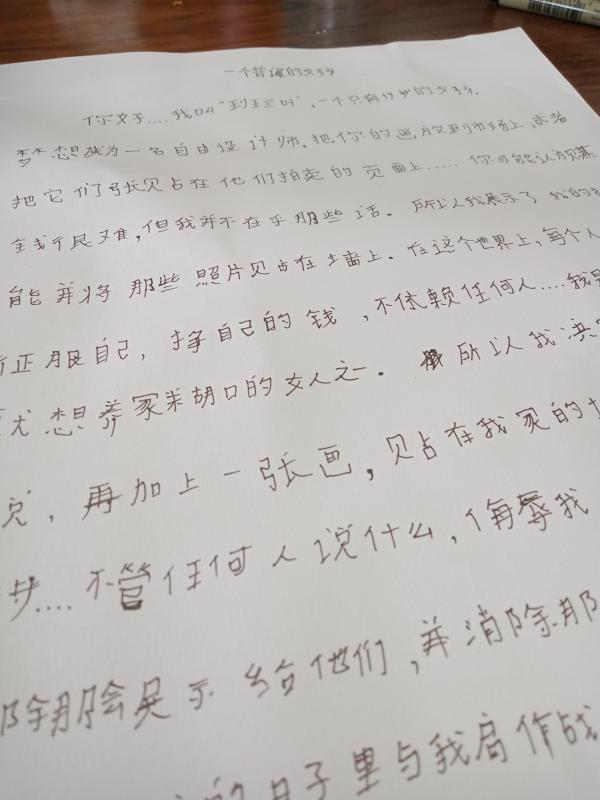 一个普通的女孩
你好....我叫"玨兰叶",一个只有17岁的女孩.
梦想成为一名自由设计师,把你的画放到市场上,或者
把它们张贝占在他们拍卖的页面上......你可能认为赚
钱很难,但我并不在乎那些话.所以我展示了我的
能并将那些照片贝占在墙上.在这个世界上,每个人
正服自己,挣自己的钱,不依赖任何人....我是
想养家米胡口的女人之一.所以我决
,再加上一张画,贝占在我家的
步....不管任何人说什么,侮辱我
除那会展示给他们,并消除那
的日子里与我启作战